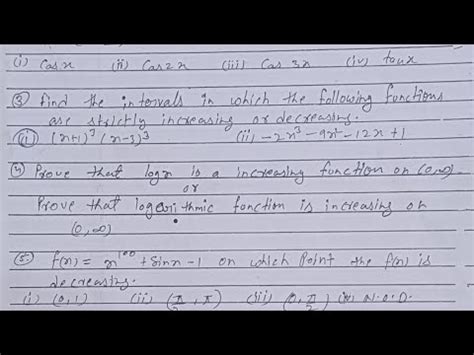 (i) Cosx (ii) Cos2x (iii) Cos3x (iv) taux
③ Find the intervals in which the following functions
are strictly increasing or decreasing.
(i) (x+1)³ (x-3)³ (ii) -2x³-9x²-12x+1
④ Prove that logx is a increasing function on (0,∞).
or
Prove that logarithmic function is increasing on
(0,∞)
⑤ f(x) = x¹⁰⁰ + Sinx - 1 on which Point the f(x) is
decreasing.
(i) (0,1) (ii) (π/2, π) (iii) (0, π/2) (iv) N.O.D.